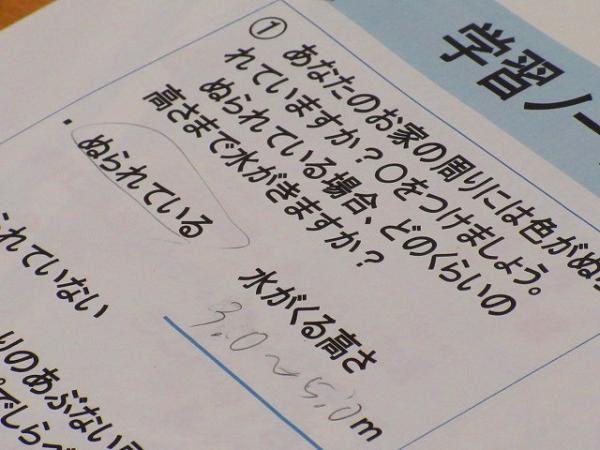 学習ノー
① あなたのお家の周りには色がぬら
れていますか?○をつけましょう。
ぬられている場合、どのくらいの
高さまで水がきますか?
・ぬられている
られていない
水がくる高さ
3.0~5.0m
りのあぶない
でしらべ